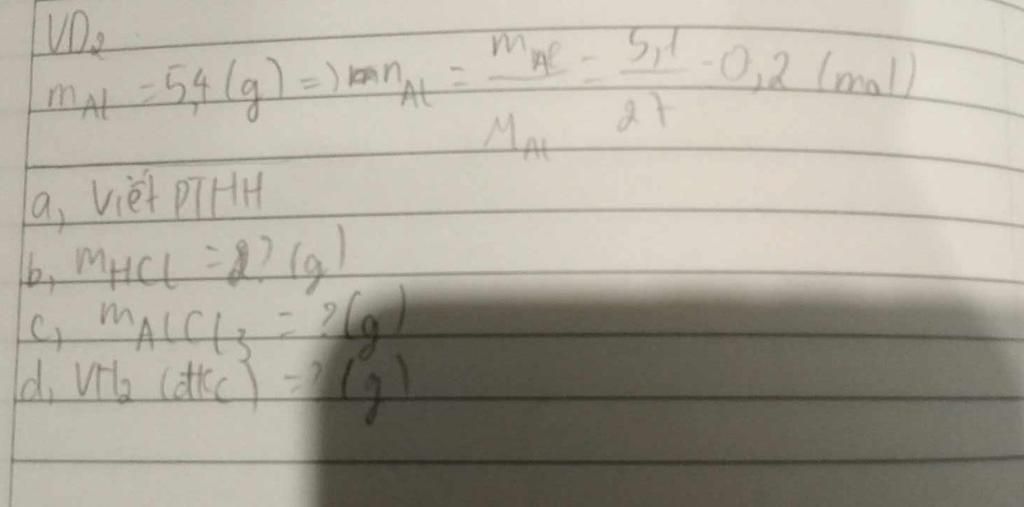 VD2
mAl = 5,4 (g) => nAl = mAl / MAl = 5,4 / 27 = 0,2 (mol)
a, Viết PTHH
b, mHCl = ? (g)
c, mAlCl3 = ? (g)
d, VH2 (đkc) = ? (g)